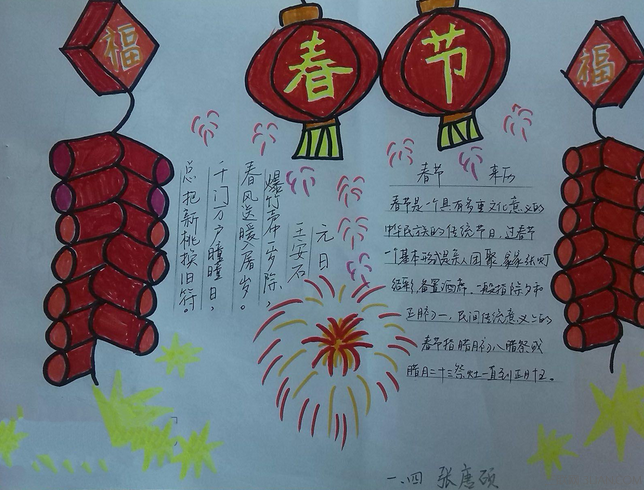 福
春
节
福
元日
王安石
爆竹声中一岁除,
春风送暖入屠苏。
千门万户瞳瞳日,
总把新桃换旧符。
春节 来历
春节是一个具有多重文化意义的
中华民族的传统节日,过春节
一个基本形式是亲人团聚,家家张灯
结彩,备置酒席。一般指除夕和
正月初一,民间传统意义上的
春节指腊月初八腊祭或
腊月二十三祭灶一直到正月十五。
一.四 张惠硕